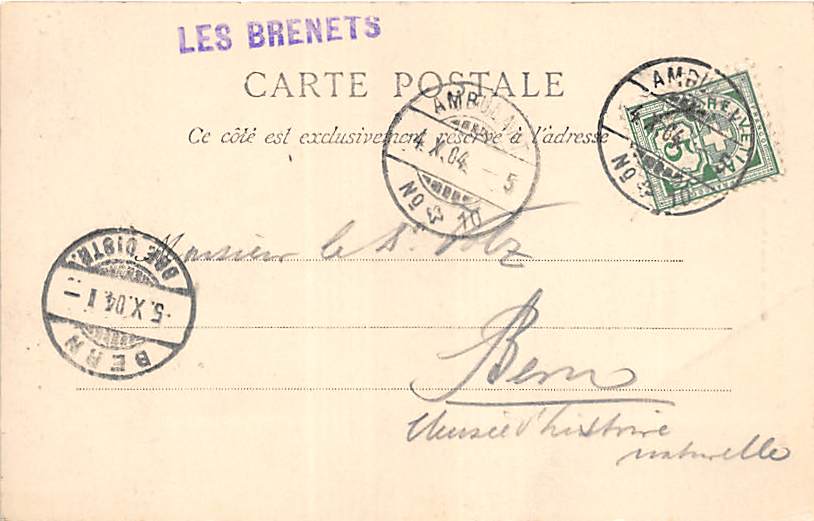 LES BRENETS
CARTE POSTALE
Ce côté est exclusivement réservé à l'adresse
AMBULANT
4.X.04.-5
No 10
AMBU
4.X.04
No 10
HELVETIA
5
Monsieur le Dr Volz
BRF. DISTR.
-5.X.04.I-
BERN
Bern
Musée d'histoire
naturelle